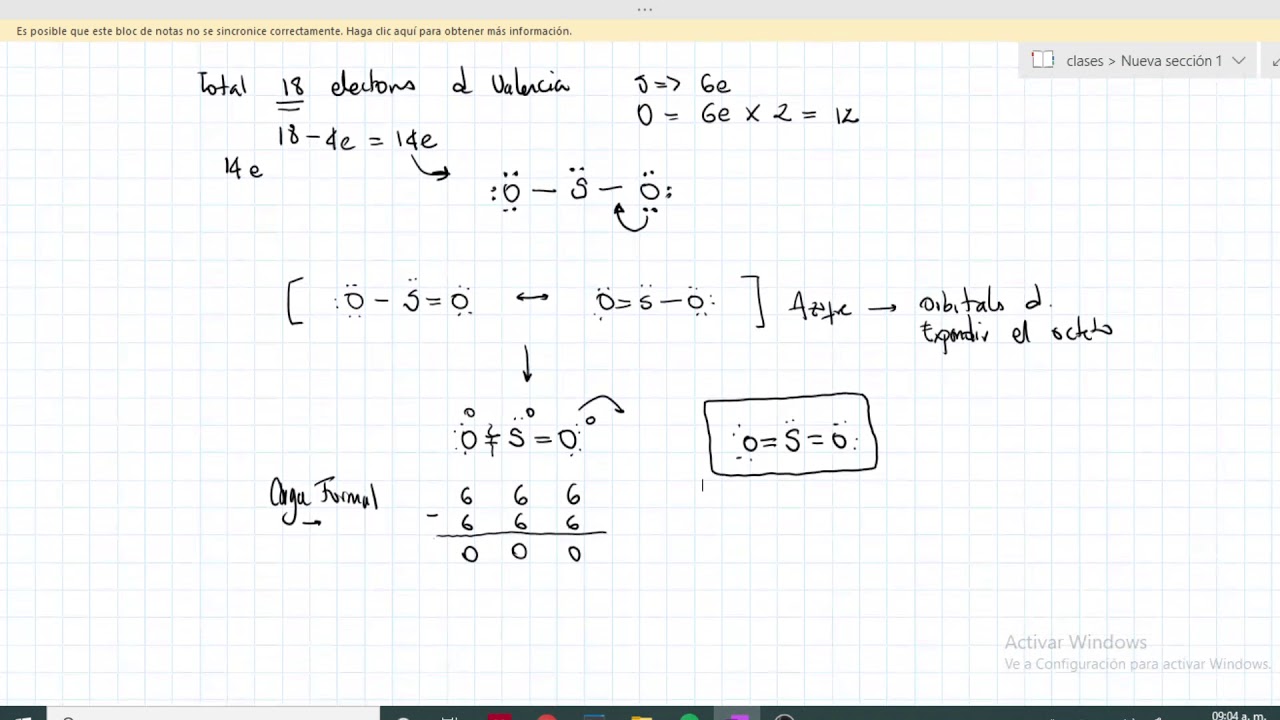 Es posible que este bloc de notas no se sincronice correctamente. Haga clic aquí para obtener más información.
clases > Nueva sección 1
Total 18 electons d Valencia
S => 6e
O = 6e x 2 = 12
18 - 4e = 14e
14 e
:O - S - O:
[ :O - S = O ↔ O = S - O: ] Azufre → orbitals d.
Expandir el octeto
0 0 0
O = S = O
O = S = O:
Carga Formal
6 6 6
- 6 6 6
0 0 0
Activar Windows
Ve a Configuración para activar Windows.
09:04 a. m.